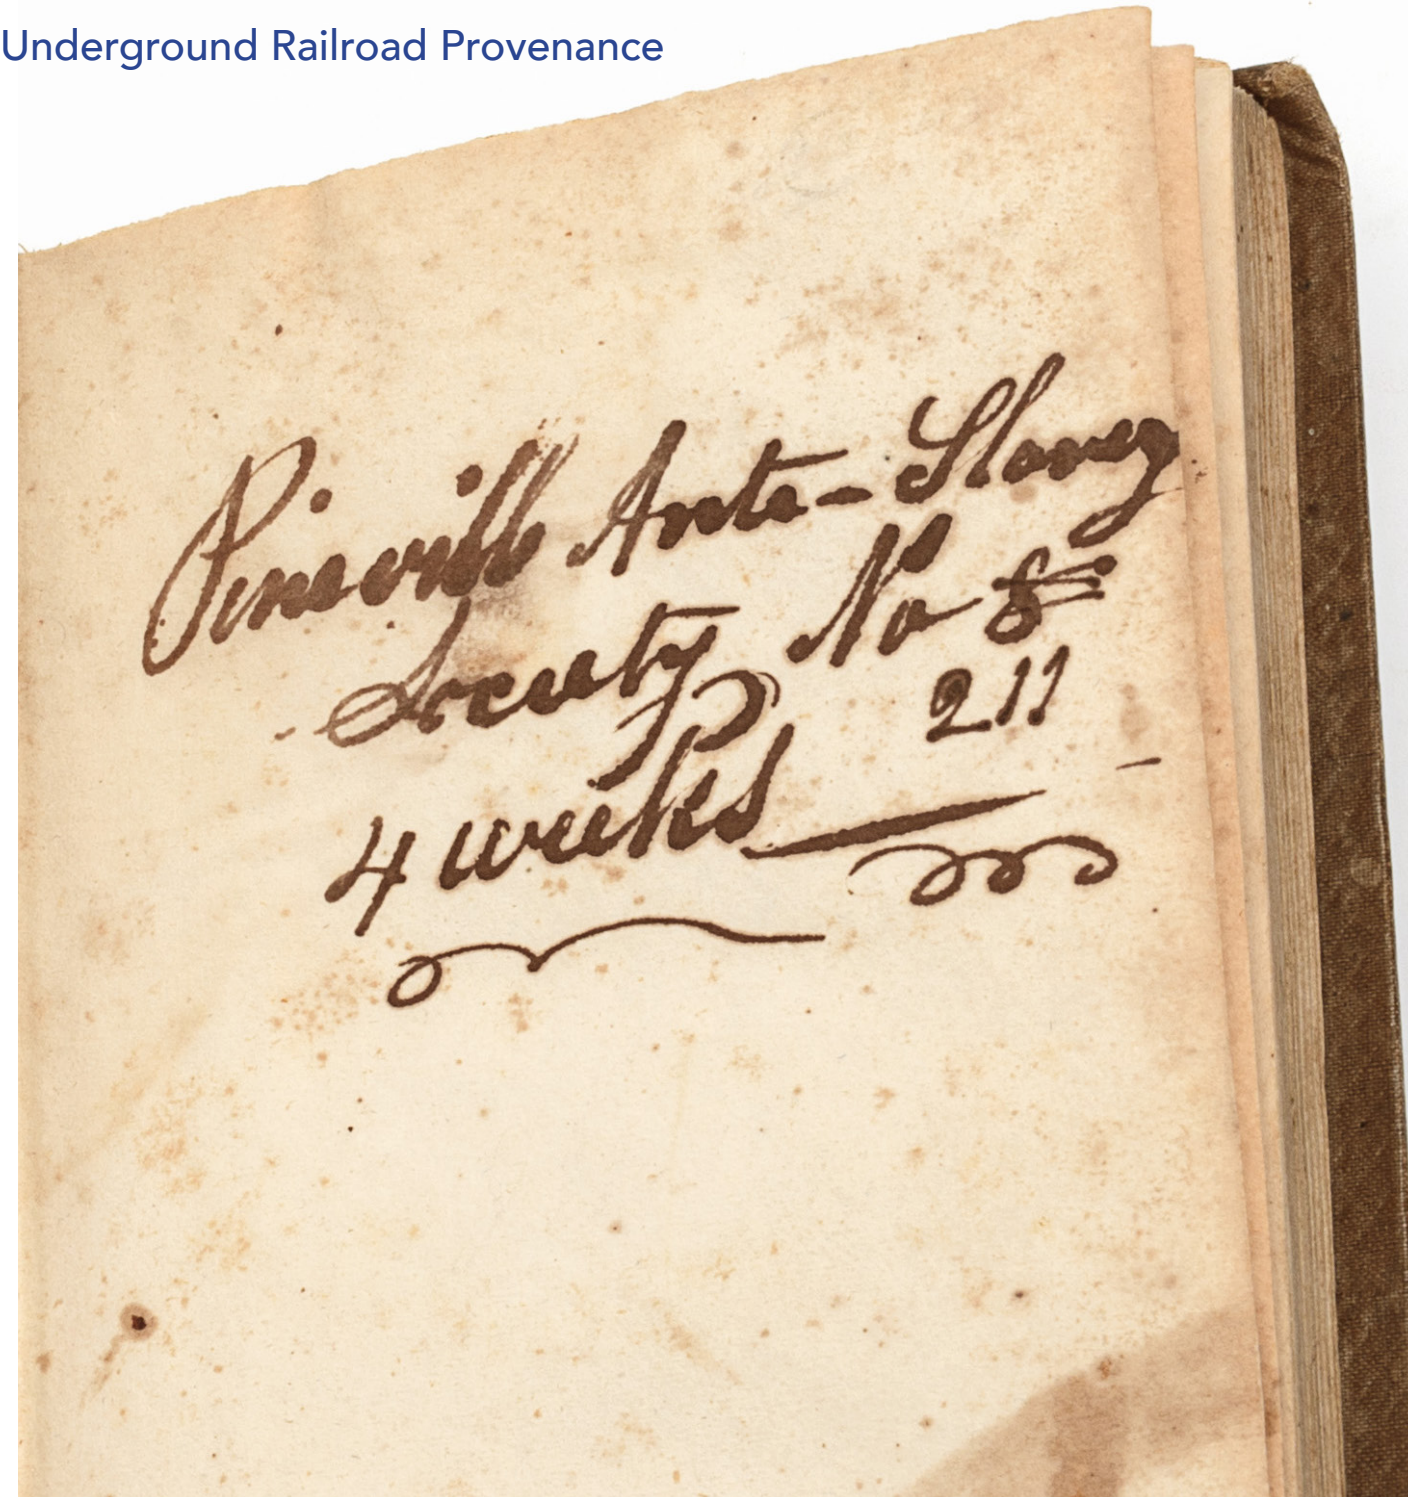 Underground Railroad Provenance
Pineville Anti-Slavery
Society No 8
211
4 weeks